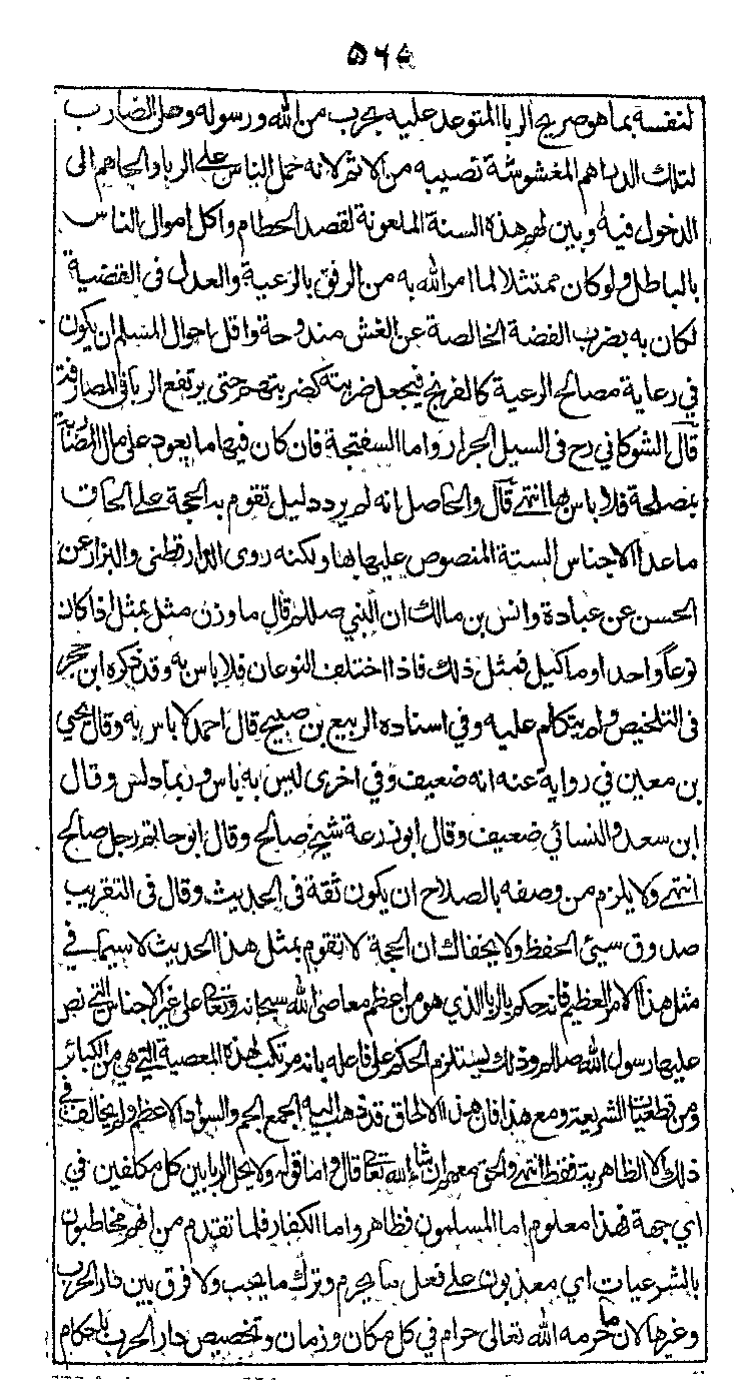 ٥٦٥
لنفسه بما هو صريح الربا المتوعد عليه بحرب من الله ورسوله وعلى الضارب
لتلك الدراهم المغشوشة نصيبه من الاثم لانه حمل الناس على الربا والجاهم الى
الدخول فيه وبين لهم هذه السنة الملعونة لقصد الحطام واكل اموال الناس
بالباطل ولو كان ممتثلا لما امر الله به من الرفق بالرعية والعدل فى القضية
لكان به بضرب الفضة الخالصة عن الغش مندوحة واقل احوال المسلم ان يكون
في رعاية مصالح الرعية كالفرنج فيجعل ضريبته كضربتهم حتى يرتفع الربا فى المصارفة
قال الشوكاني رح فى السيل الجرار واما السفتجة فان كان فيها ما يعود على مال
بمصلحة فلا باس بها انتهى قال والحاصل انه لم يرد دليل تقوم به الحجة على الحاق
ما عدا الاجناس الستة المنصوص عليها بها ولكنه روى الدارقطنى والبزار عن
الحسن عن عبادة وانس بن مالك ان النبي صللم قال ما وزن مثل بمثل اذا كان
نوعا واحدا وما كيل فمثل ذلك فاذا اختلف النوعان فلا باس به وقد ذكره ابن حجر
فى التلخيص ولم يتكلم عليه وفي اسناده الربيع بن صبيح قال احمد لا باس به وقال يحيى
بن معين في رواية عنه انه ضعيف وفي اخرى ليس به باس وربما دلس وقال
ابن سعد والنسائي ضعيف وقال ابو زرعة شيخ صالح وقال ابو حاتم رجل صالح
انتهى ولا يلزم من وصفه بالصلاح ان يكون ثقة فى الحديث وقال فى التقريب
صدوق سيئ الحفظ ولا يخفاك ان الحجة لا تقوم بمثل هذا الحديث لا سيما في
مثل هذا الامر العظيم فانه حكم بالربا الذي هو من اعظم معاصى الله سبحانه وتعالى على غير الاجناس التي نص
عليها رسول الله صللم وذلك يستلزم الحكم على فاعله بانه مرتكب لهذه المعصية التي هي من الكبائر
ومن قطعيات الشريعة ومع هذا فان هذا الالحاق قد ذهب اليه الجمع الجم والسواد الاعظم ولم يخالف في
ذلك الا الظاهرية فقط انتهى والحق معهم ان شاء الله تعالى قال واما قوله ولا يحل الربا بين كل مكلفين في
اي جهة فهذا معلوم اما المسلمون فظاهر واما الكفار فلما تقدم من انهم مخاطبون
بالشرعيات اي معذبون على فعل ما يحرم وترك ما يجب ولا فرق بين دار الحرب
وغيرها لان ما حرمه الله تعالى حرام في كل مكان وزمان وتخصيص دار الحرب باحكام